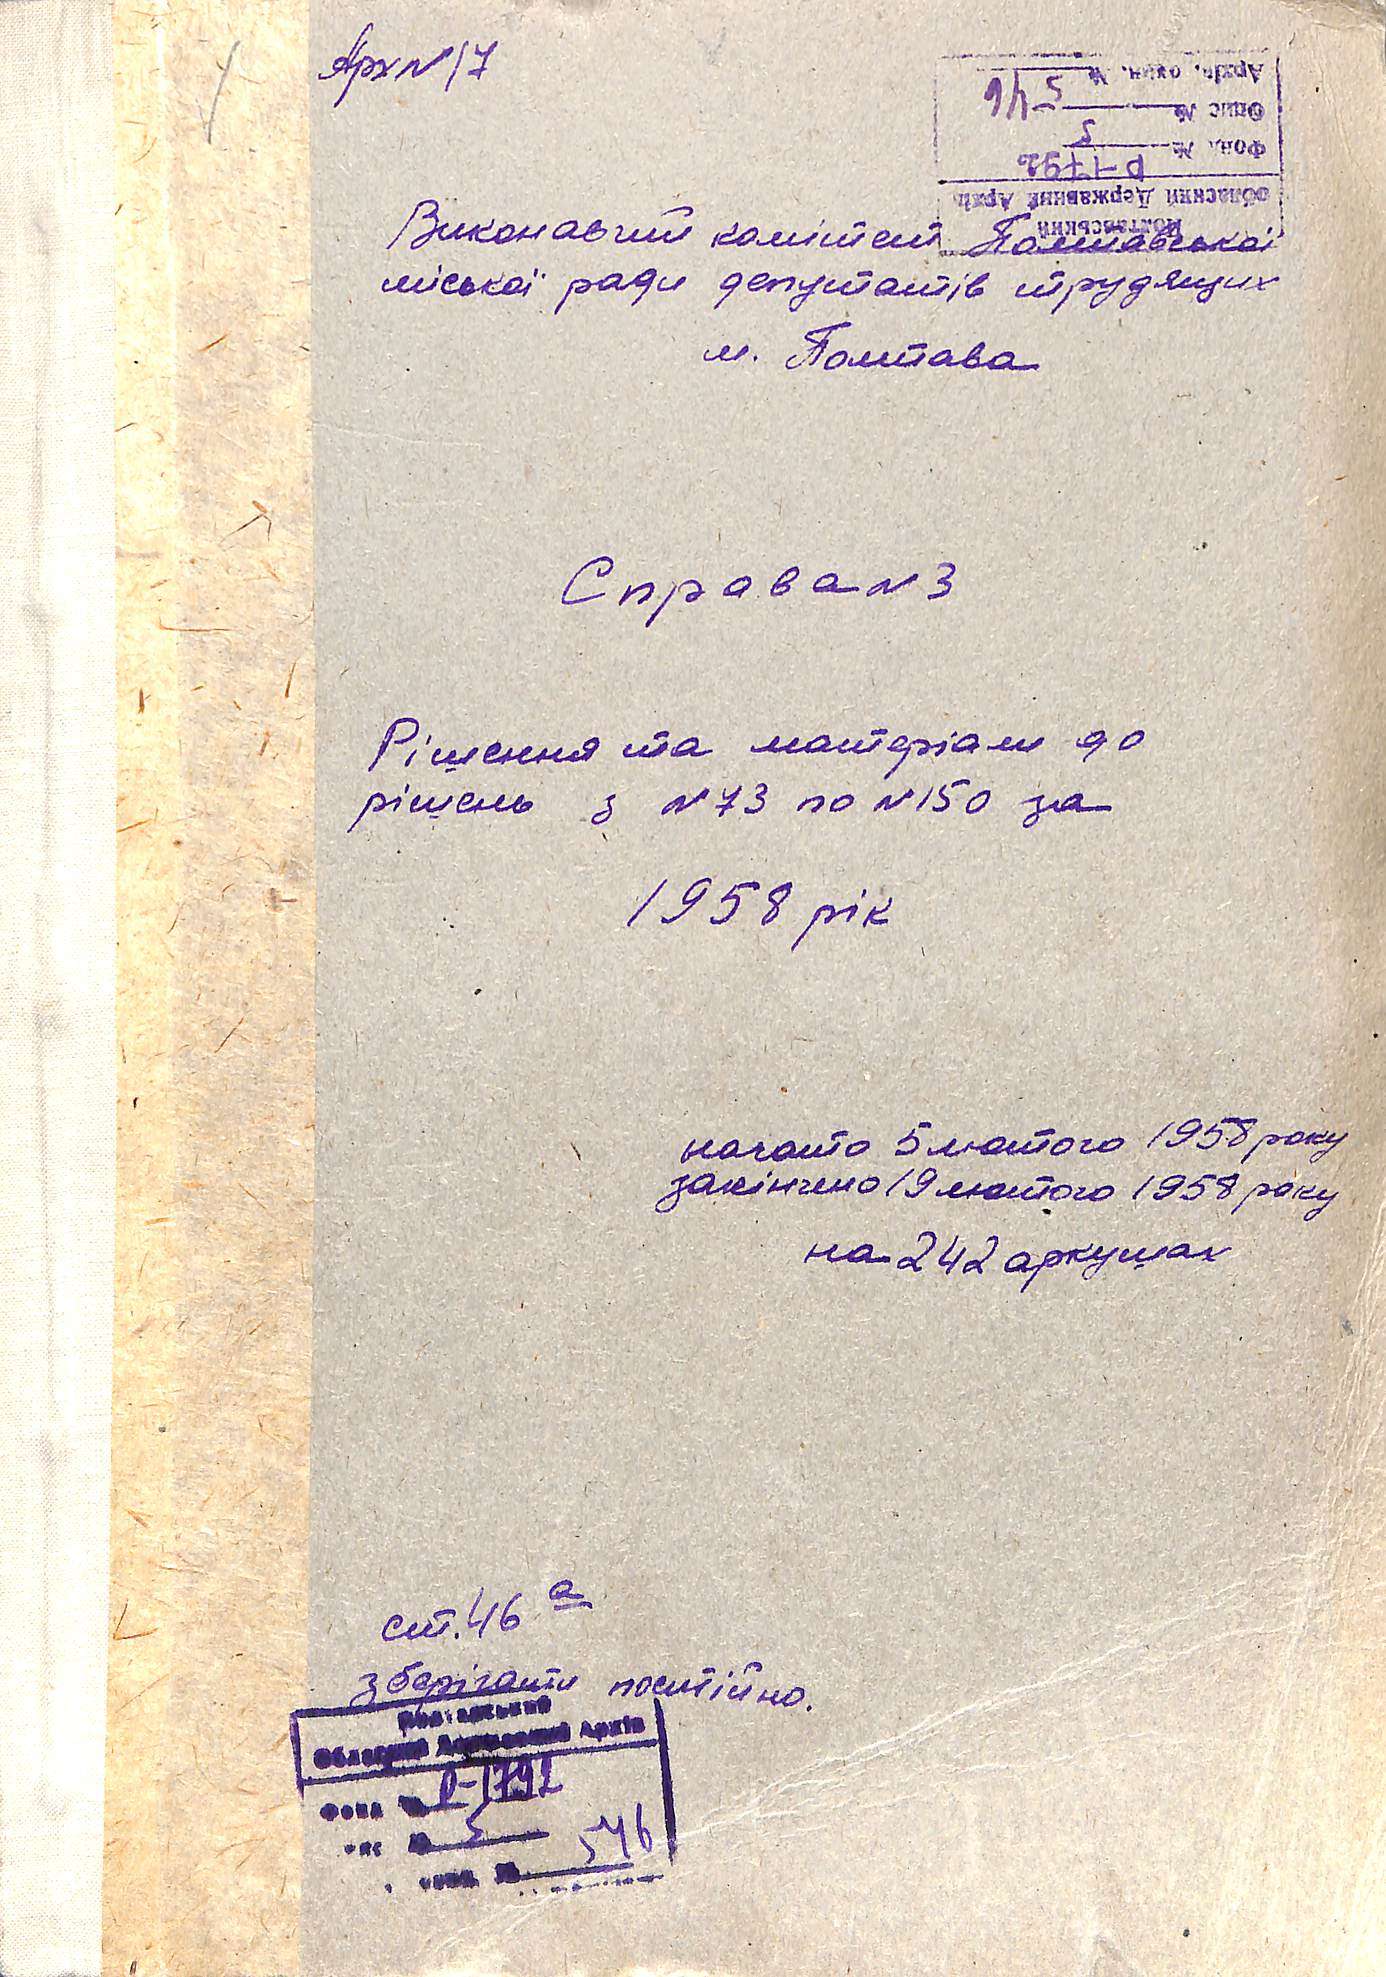 Арх №17
Полтавський
Обласний Державний Архів
Фонд № Р-1792
Опис № 5
Архів. один. № 546
Виконавчий комітет Полтавської
міської ради депутатів трудящих
м. Полтава
Справа №3
Рішення та матеріали до
рішень з №73 по №150 за
1958 рік
начато 5 лютого 1958 року
закінчено 19 лютого 1958 року
на 242 аркушах
ст. 46 а
зберігати постійно.
Полтавський
Обласний Державний Архів
Фонд № Р-1792
опис № 5
один. № 546